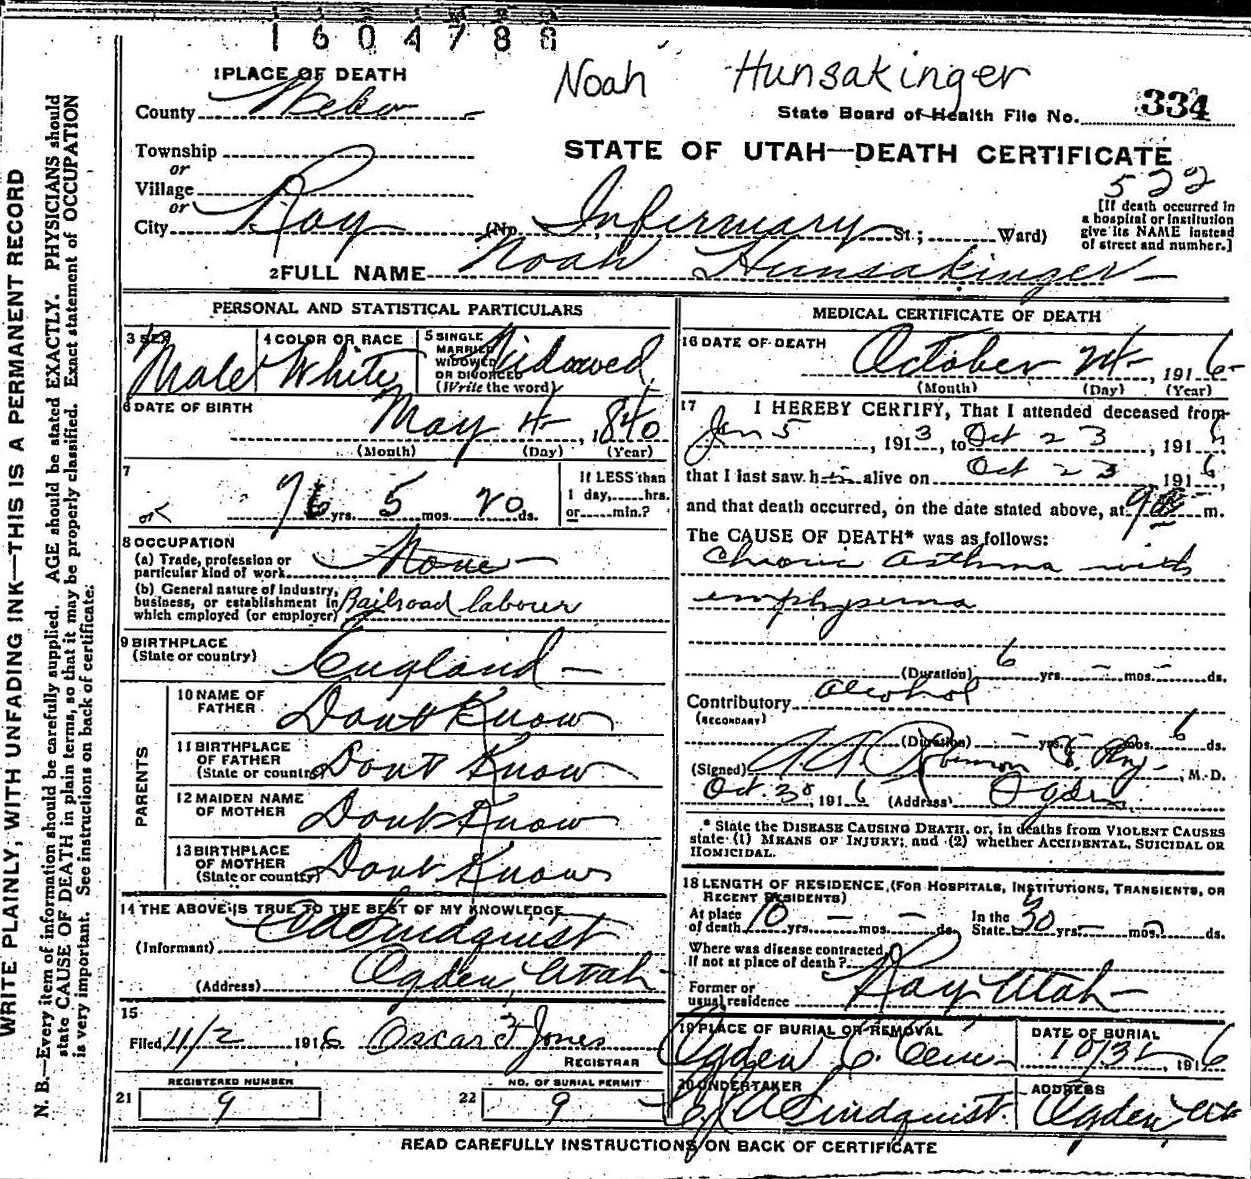 1604788
Noah Hunsakinger
1 PLACE OF DEATH
County Weber
State Board of Health File No. 334
Township
or
Village
or
City Roy (No. Infermary St.; Ward)
STATE OF UTAH—DEATH CERTIFICATE
522
[If death occurred in
a hospital or institution
give its NAME instead
of street and number.]
2 FULL NAME Noah Hunsakinger
PERSONAL AND STATISTICAL PARTICULARS
3 SEX Male
4 COLOR OR RACE White
5 SINGLE
MARRIED
WIDOWED
OR DIVORCED
(Write the word) Widowed
6 DATE OF BIRTH
May 4, 1840
(Month) (Day) (Year)
7
76 yrs. 5 mos. 20 ds.
If LESS than
1 day, hrs.
or min.?
8 OCCUPATION
(a) Trade, profession or
particular kind of work None
(b) General nature of industry,
business, or establishment in
which employed (or employer) Railroad labourer
9 BIRTHPLACE
(State or country) England
PARENTS
10 NAME OF
FATHER Dont Know
11 BIRTHPLACE
OF FATHER
(State or country) Dont Know
12 MAIDEN NAME
OF MOTHER Dont Know
13 BIRTHPLACE
OF MOTHER
(State or country) Dont Know
14 THE ABOVE IS TRUE TO THE BEST OF MY KNOWLEDGE
(Informant) Lindquist
(Address) Ogden, Utah
15
Filed 11/2 1916 Oscar F Jones
REGISTRAR
REGISTERED NUMBER
21 9
NO. OF BURIAL PERMIT
22 9
MEDICAL CERTIFICATE OF DEATH
16 DATE OF DEATH
October 24, 1916
(Month) (Day) (Year)
17 I HEREBY CERTIFY, That I attended deceased from
Jan 5, 1913, to Oct 23, 1916,
that I last saw him alive on Oct 23, 1916,
and that death occurred, on the date stated above, at m.
The CAUSE OF DEATH* was as follows:
Chronic asthma with
emphysema
(Duration) 6 yrs. – mos. – ds.
Contributory alcohol
(SECONDARY)
(Duration) – yrs. mos. 6 ds.
(Signed) , M. D.
Oct. 1916 (Address) Ogden
* State the DISEASE CAUSING DEATH, or, in deaths from VIOLENT CAUSES
state (1) MEANS OF INJURY; and (2) whether ACCIDENTAL, SUICIDAL OR
HOMICIDAL.
18 LENGTH OF RESIDENCE (FOR HOSPITALS, INSTITUTIONS, TRANSIENTS, OR
RECENT RESIDENTS)
At place
of death 10 yrs. – mos. – ds.
In the
State 50 yrs. – mos. ds.
Where was disease contracted,
If not at place of death?
Former or
usual residence Roy Utah
19 PLACE OF BURIAL OR REMOVAL
Ogden C. Cem
DATE OF BURIAL
1916
20 UNDERTAKER
Lindquist
ADDRESS
Ogden, Utah
READ CAREFULLY INSTRUCTIONS ON BACK OF CERTIFICATE
WRITE PLAINLY, WITH UNFADING INK—THIS IS A PERMANENT RECORD
N. B.—Every item of information should be carefully supplied. AGE should be stated EXACTLY. PHYSICIANS should
state CAUSE OF DEATH in plain terms, so that it may be properly classified. Exact statement of OCCUPATION
is very important. See instructions on back of certificate.